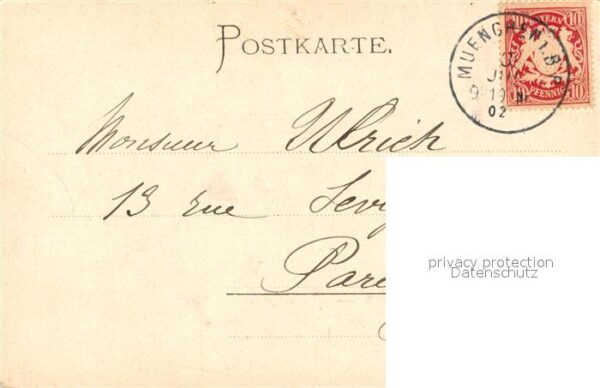 POSTKARTE.
MUENCHEN 1. B.P.
3
JUN
9-10 N
02
BAYERN
10 10
PFENNIG
Monsieur Ulrich
13 rue Sevi
Par
privacy protection
Datenschutz